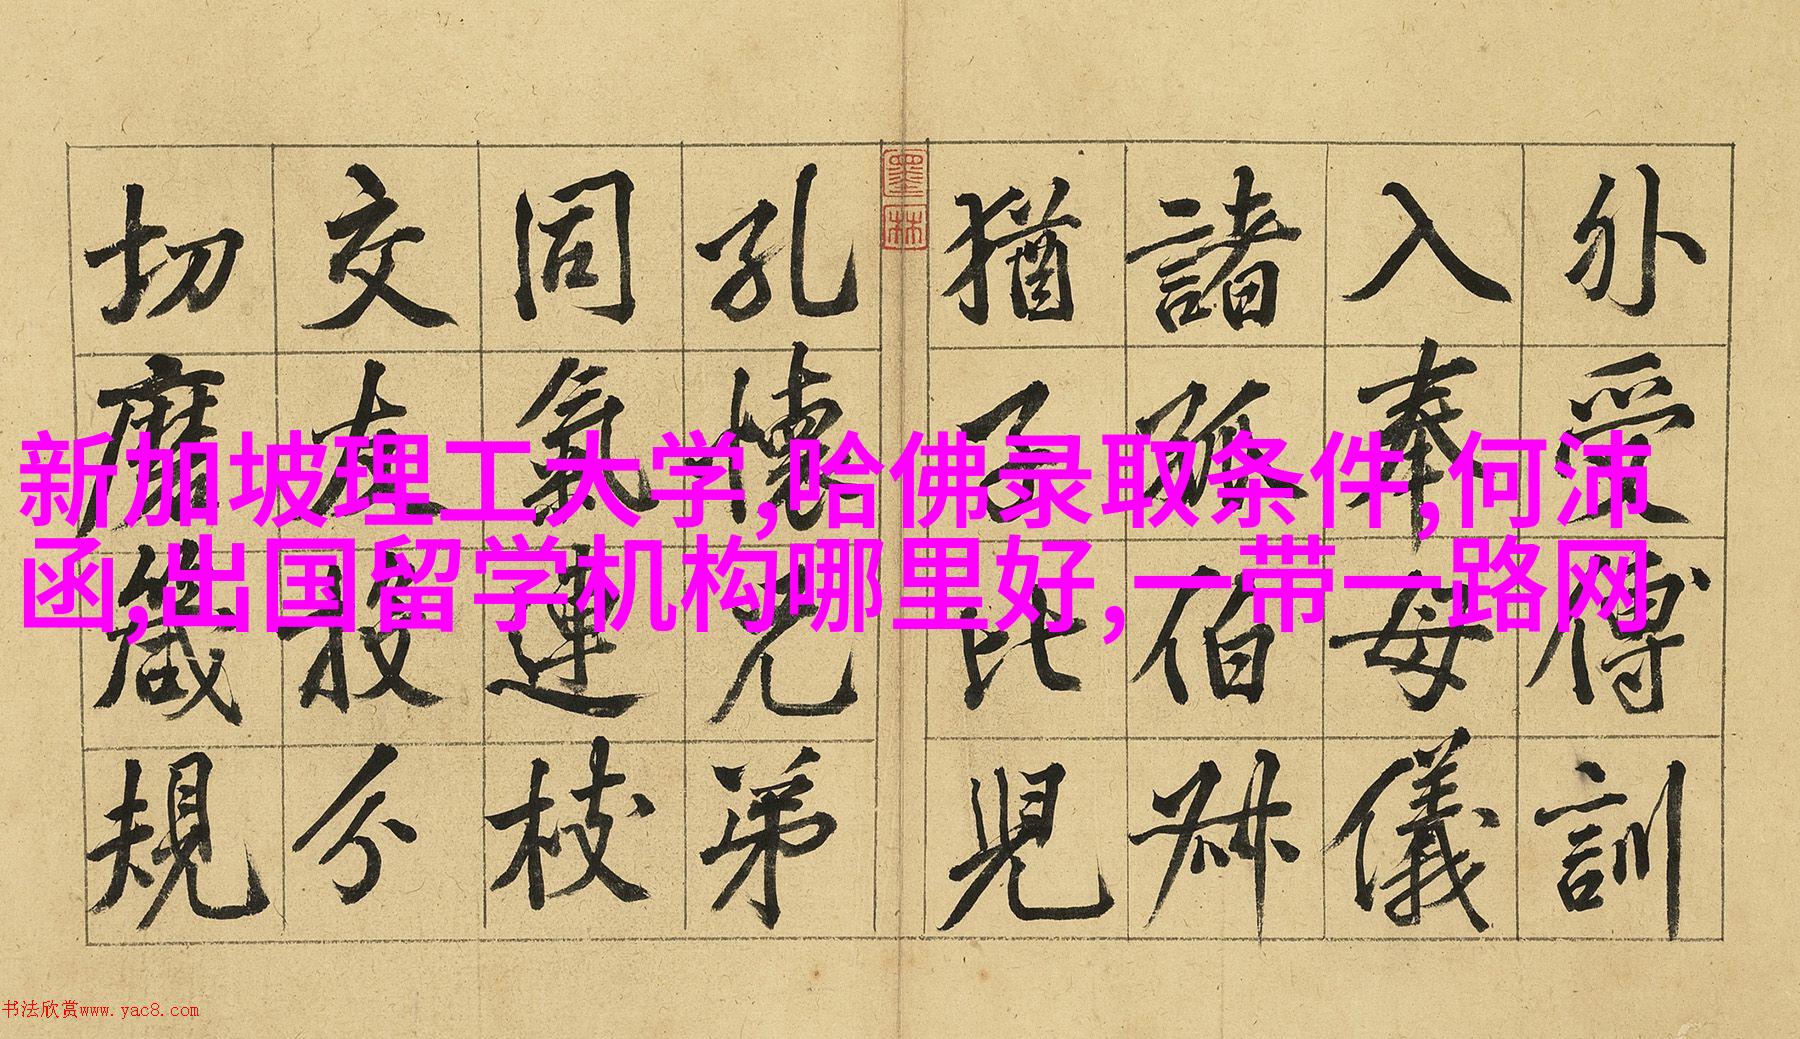 外受傅訓
入奉母儀
諸孤伯叔
猶子比兒
孔懷兄弟
同氣連枝
交友投分
切磨箴規
墨林
新加坡理工大学,哈佛录取条件,何沛
函,出国留学机构哪里好,一带一路网
书法欣赏www.yac8.com